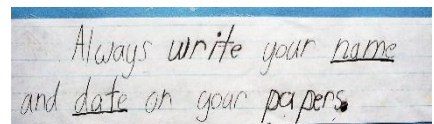 Always write your name
and date on your papers.